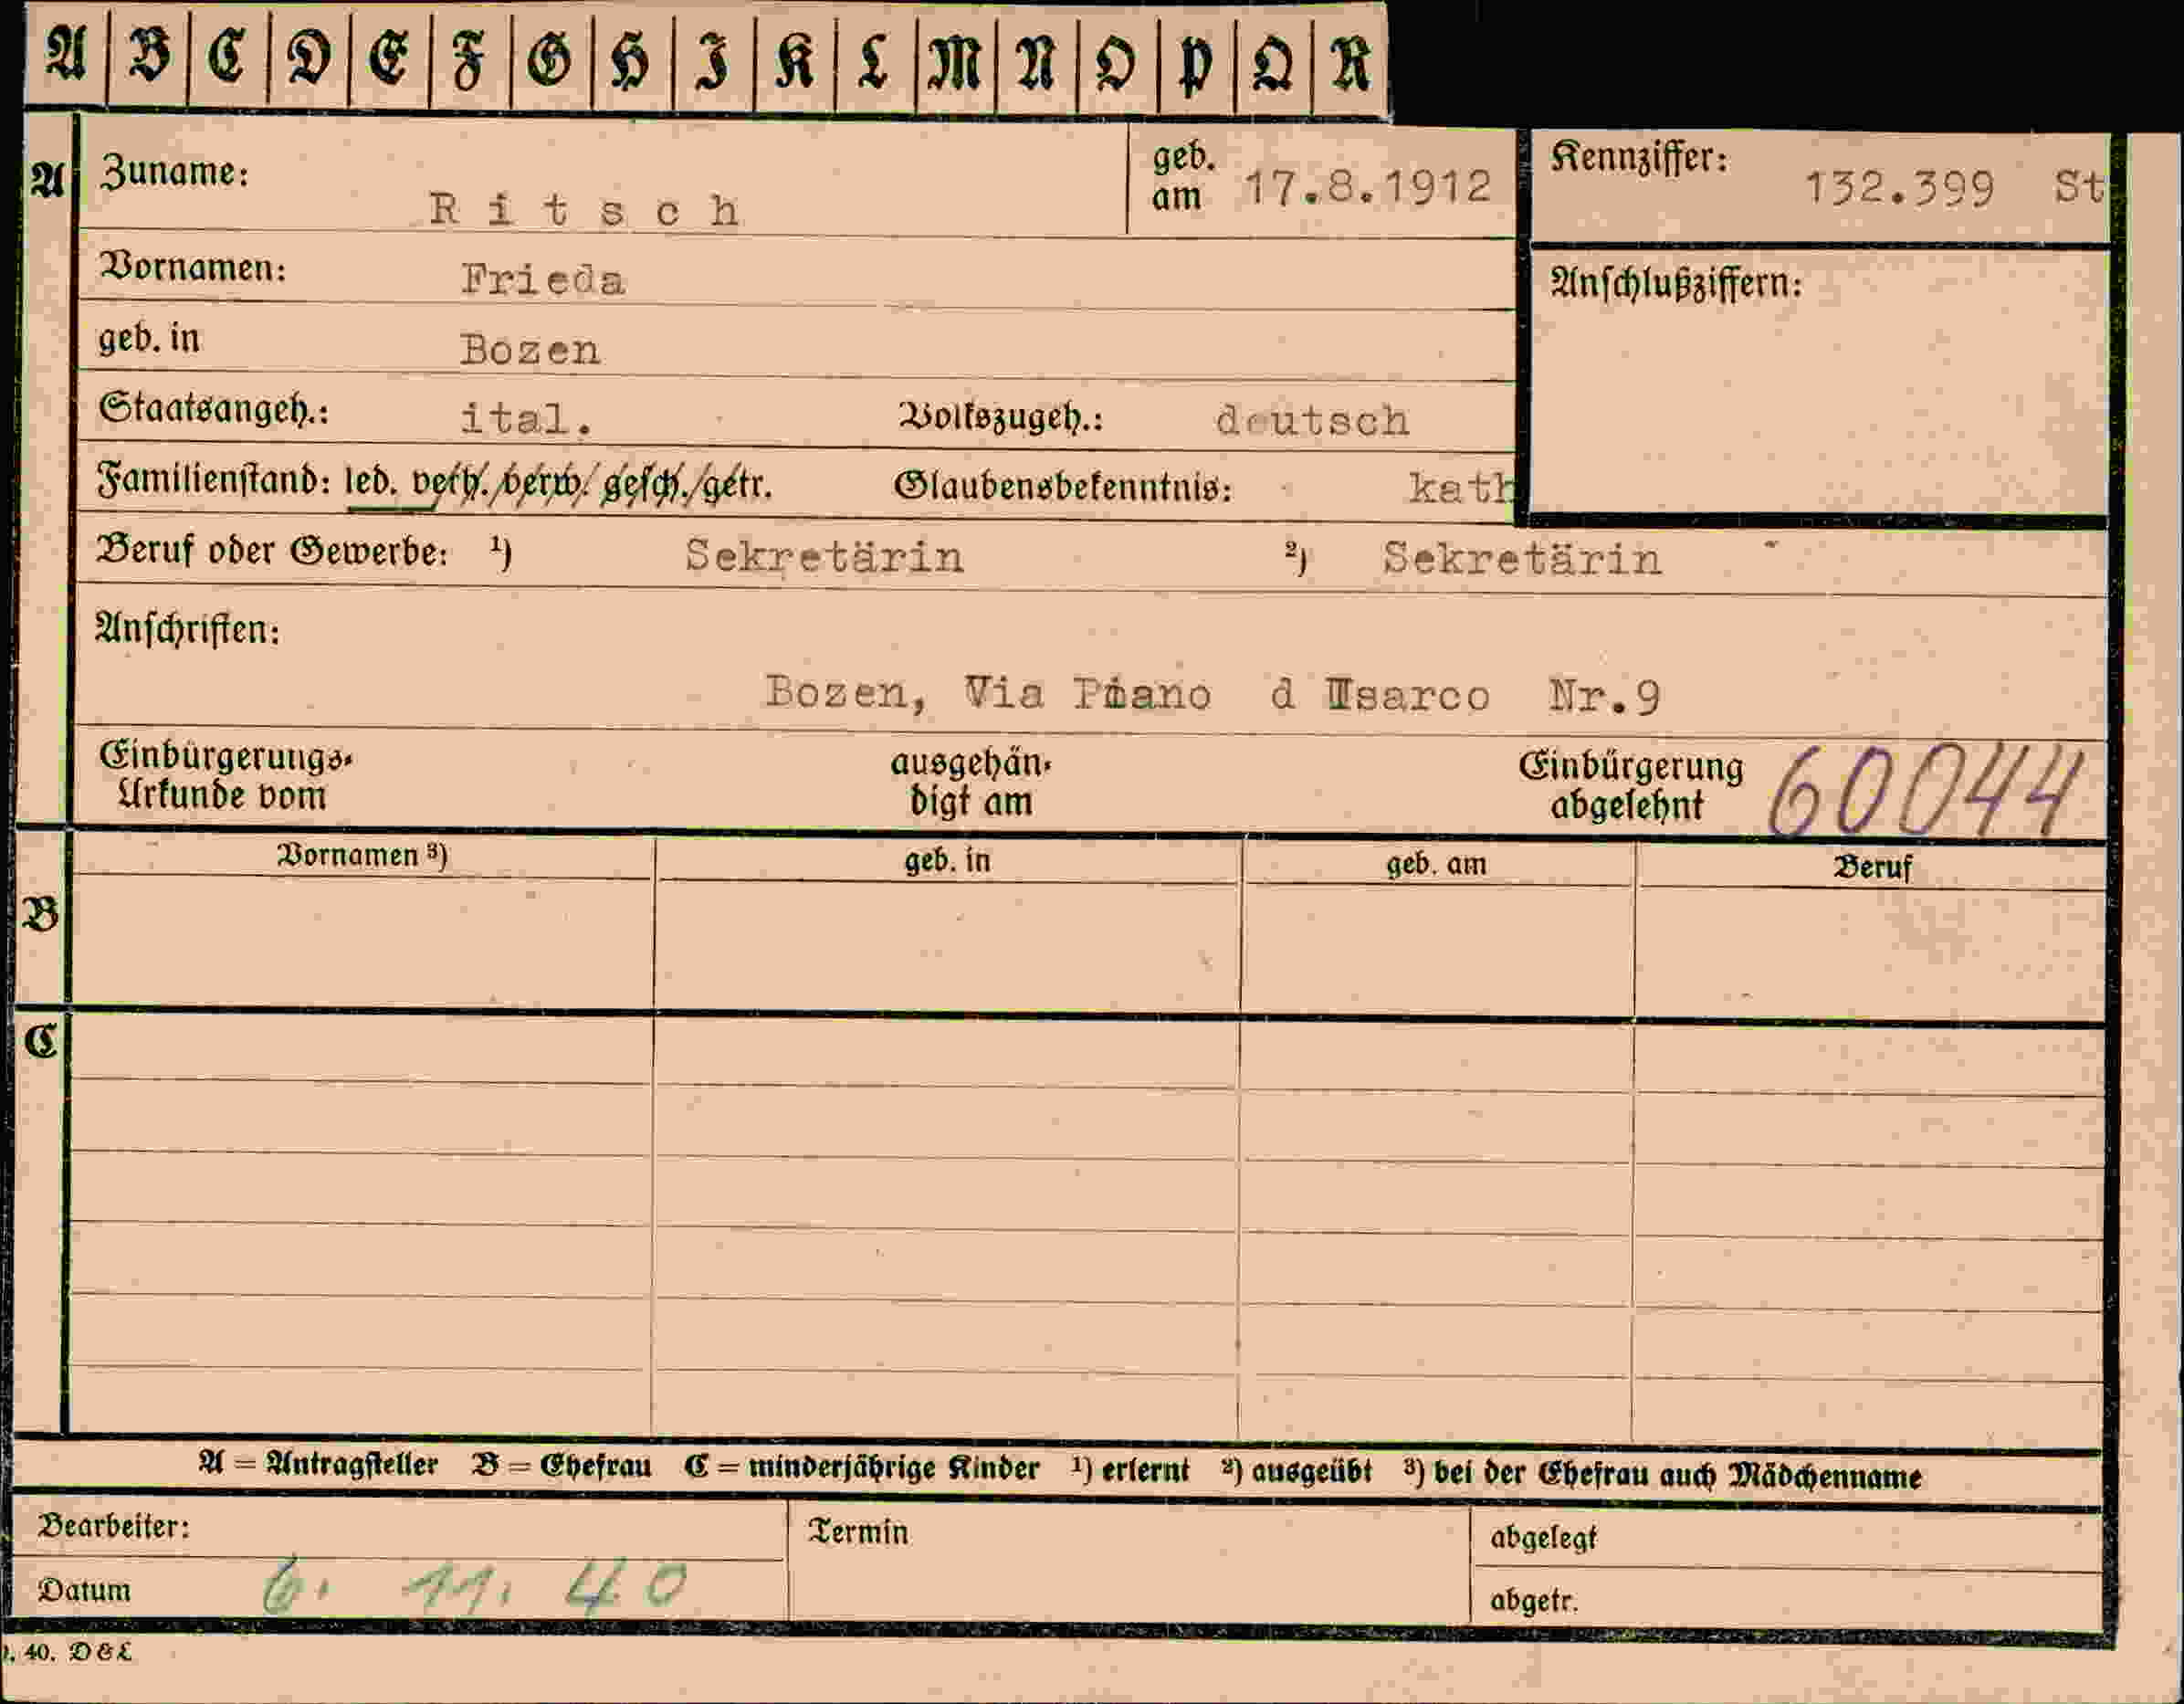 A B C D E F G H I K L M N O P Q R
A Zuname: R i t s c h geb. am 17.8.1912 Kennziffer: 132.399 St
Vornamen: Frieda Anschlußziffern:
geb. in Bozen
Staatsangeh.: ital. Volkszugeh.: deutsch
Familienstand: led. verh./verw./gesch./getr. Glaubensbekenntnis: kath
Beruf oder Gewerbe: ¹) Sekretärin ²) Sekretärin
Anschriften:
Bozen, Via Piano d Isarco Nr.9
Einbürgerungs- ausgehän- Einbürgerung 60044
Urkunde vom digt am abgelehnt
Vornamen ³) geb. in geb. am Beruf
B
C
A = Antragsteller B = Ehefrau C = minderjährige Kinder ¹) erlernt ²) ausgeübt ³) bei der Ehefrau auch Mädchenname
Bearbeiter: Termin abgelegt
Datum 6. 11. 40 abgetr.
40. D & L